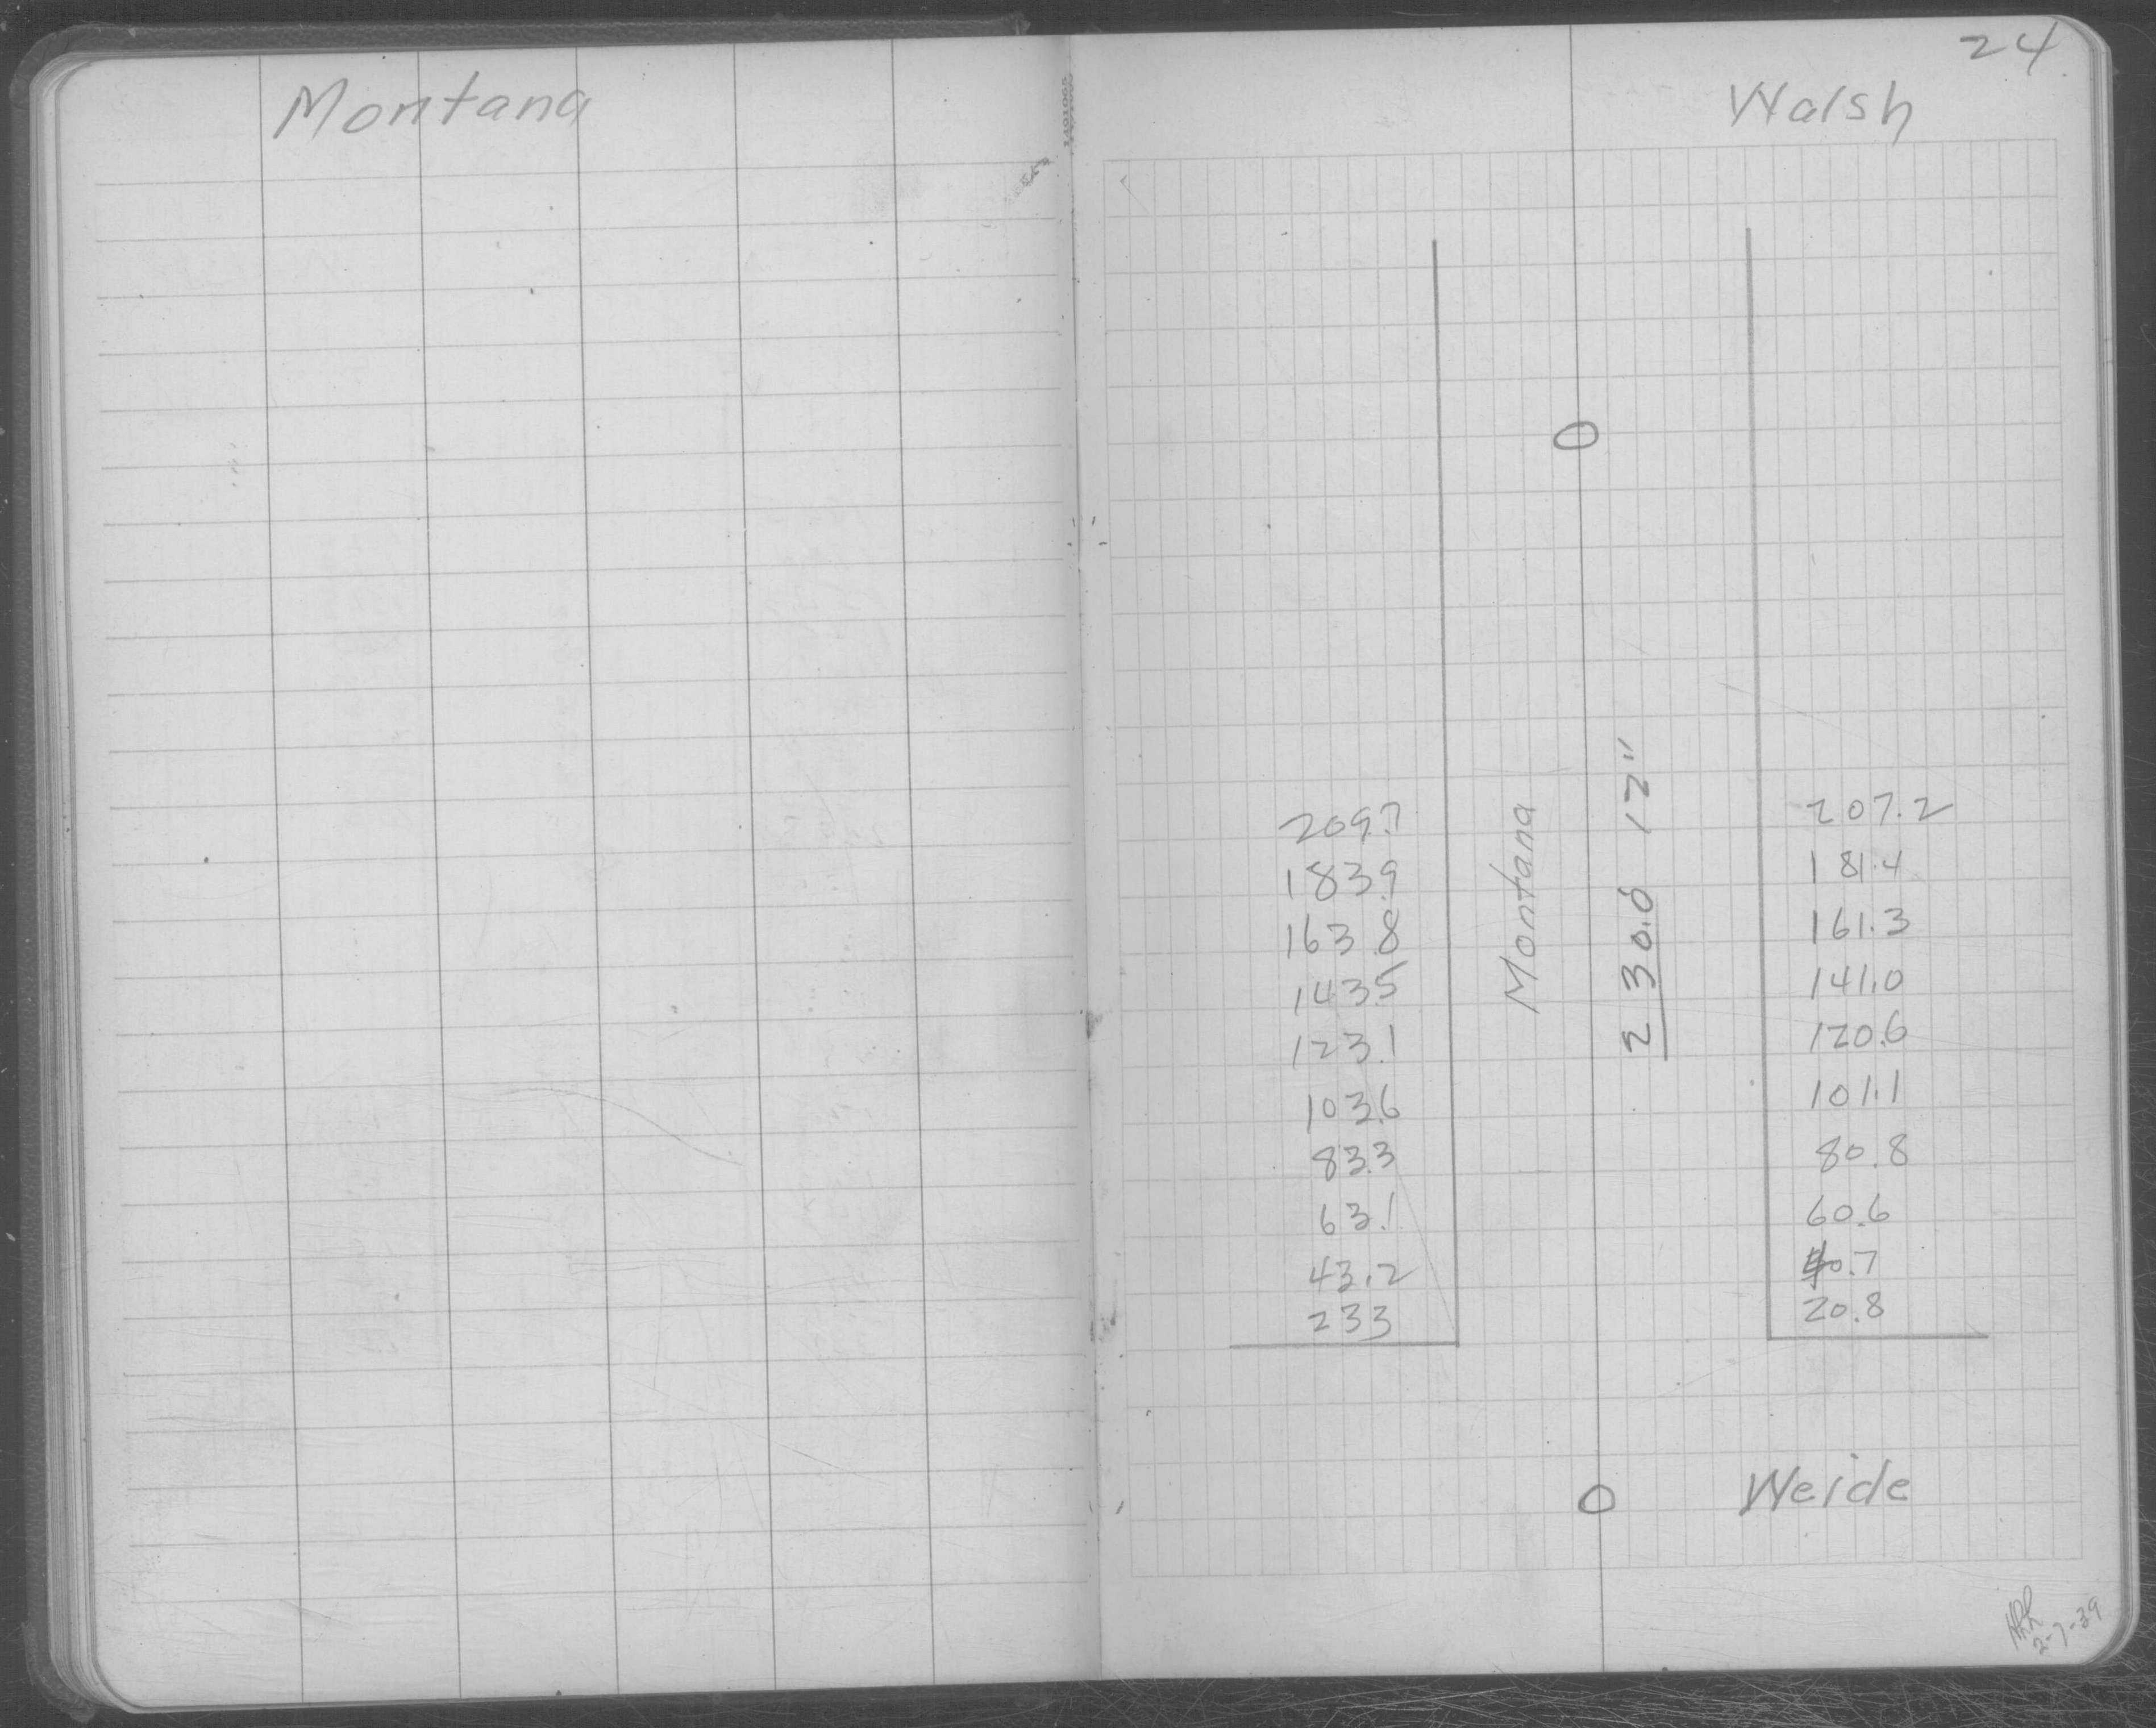 Montana
24
Walsh
209.7
183.9
163.8
143.5
123.1
103.6
83.3
63.1
43.2
233
Montana
230.0 12"
207.2
181.4
161.3
141.0
120.6
101.1
80.8
60.6
40.7
20.8
Weide
2-7-39